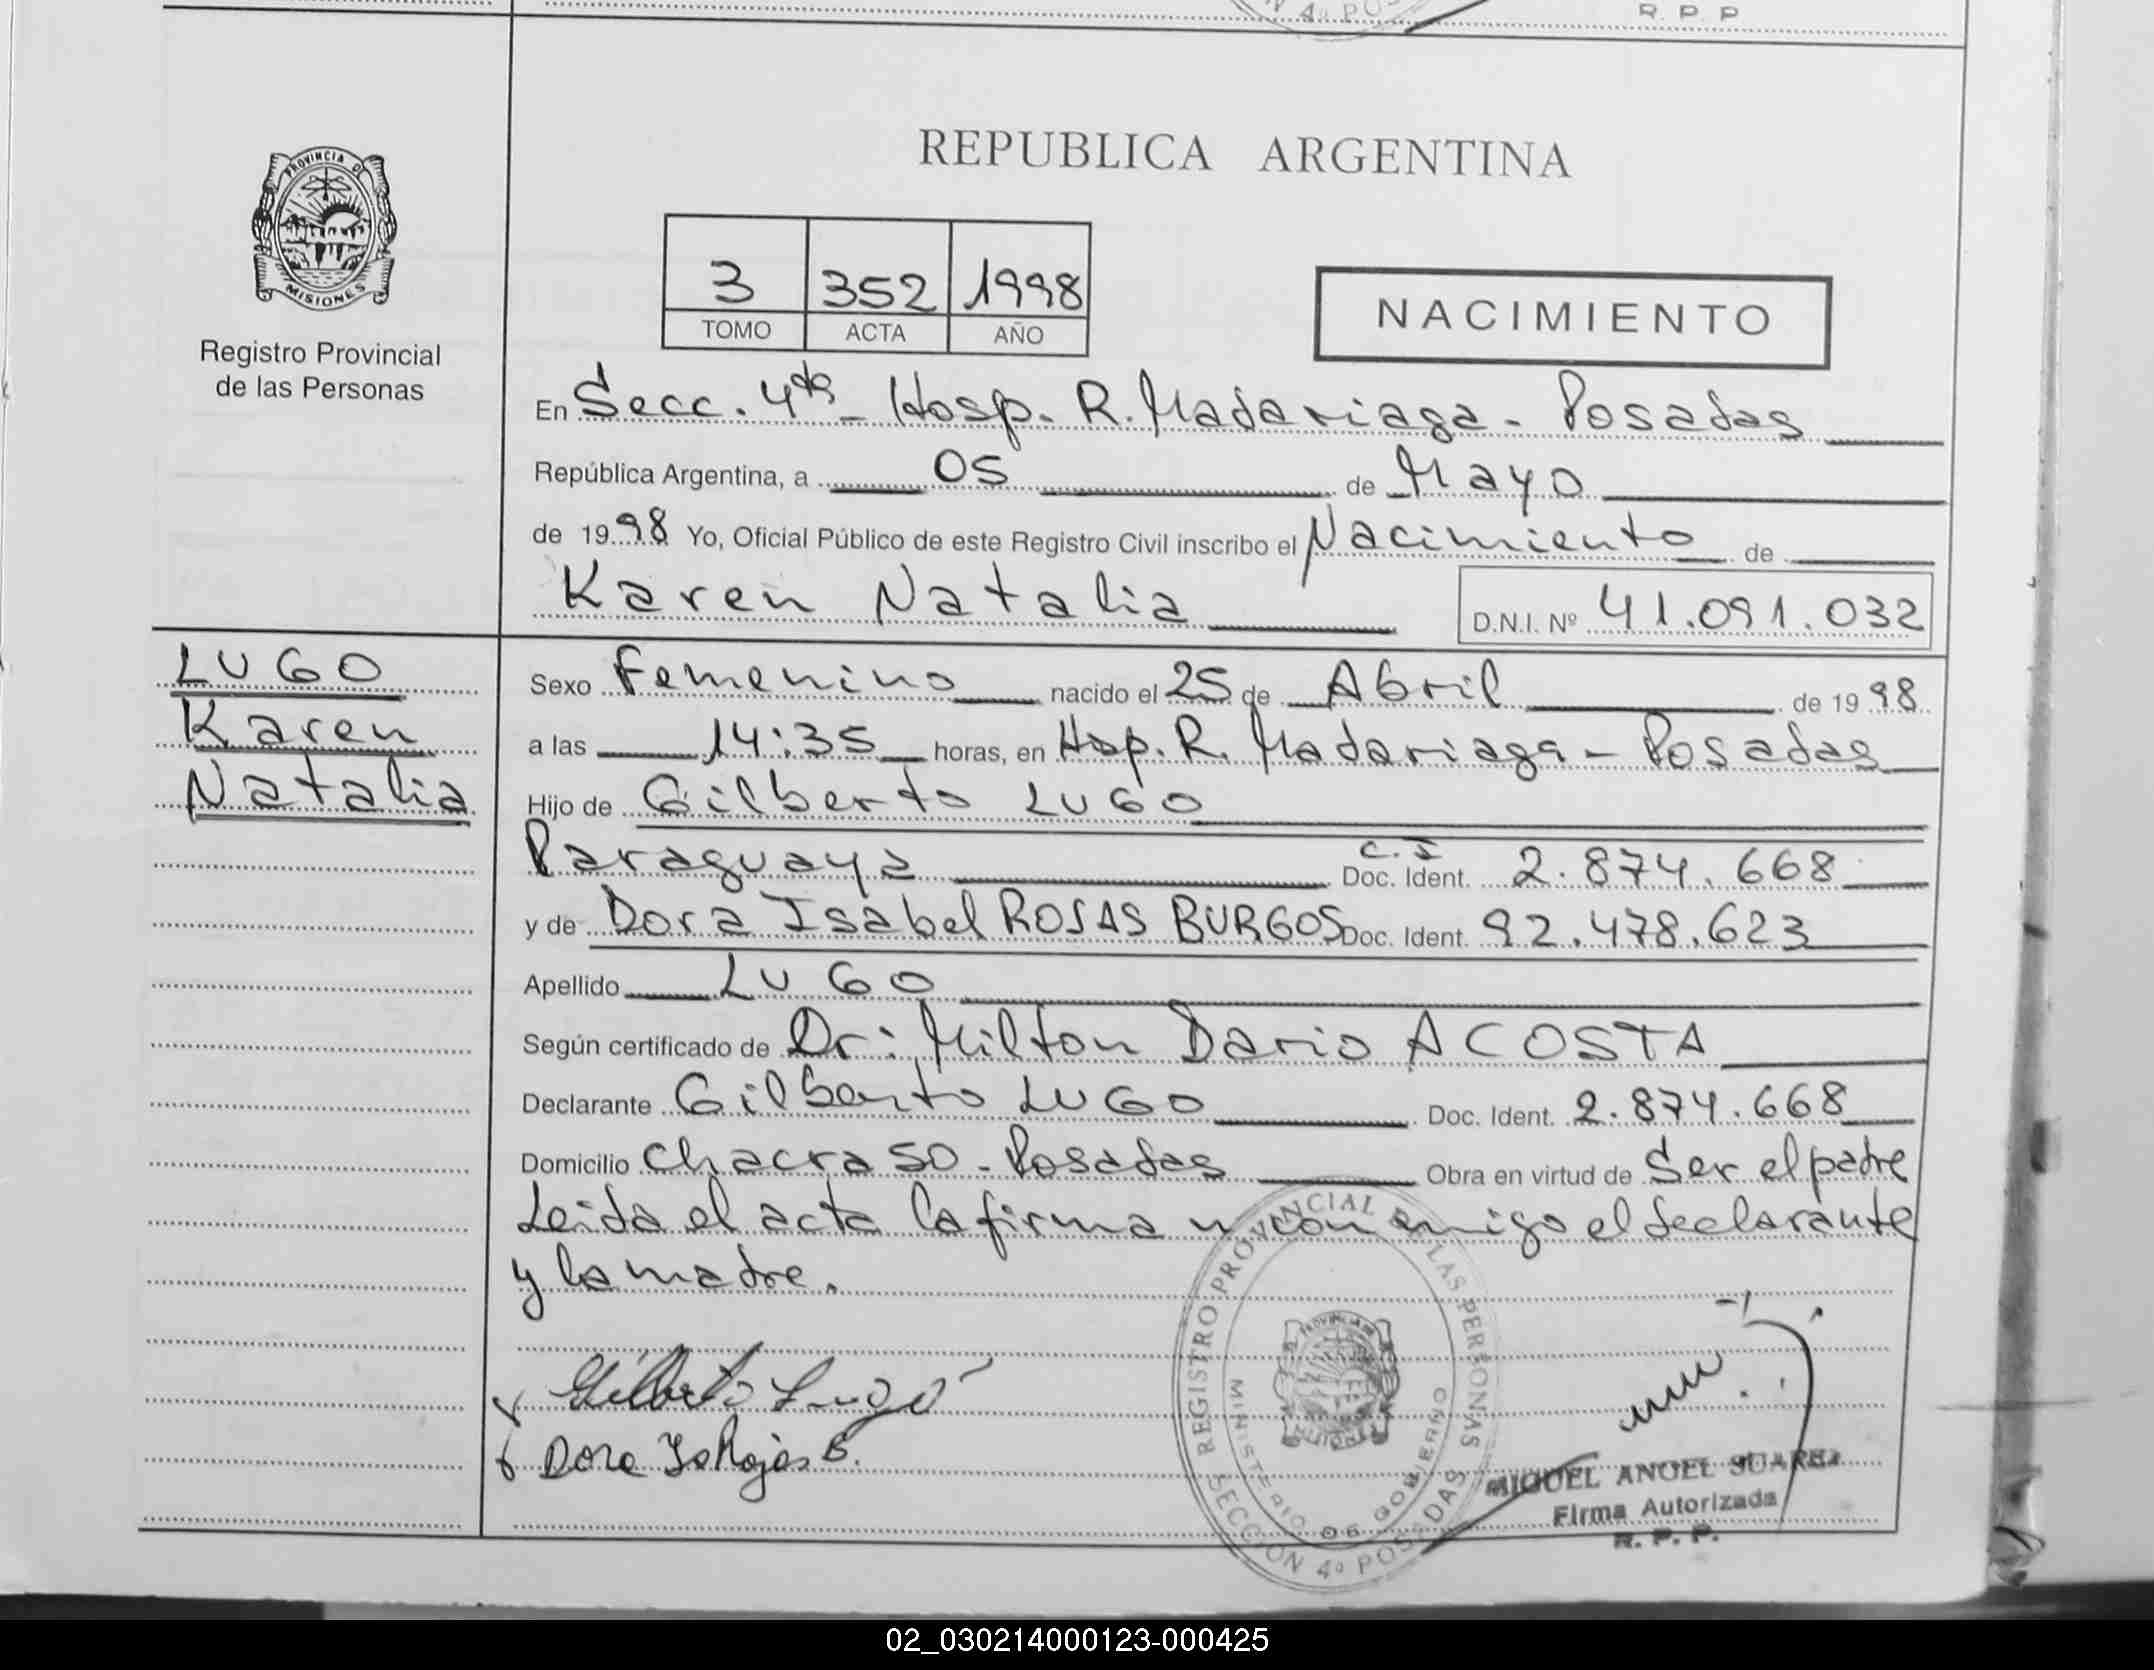 R. P. P
N 4º POS
PROVINCIA D
MISIONES
Registro Provincial
de las Personas
REPUBLICA ARGENTINA
3 352 1998
TOMO ACTA AÑO
NACIMIENTO
En Secc. 4ta - Hosp. R. Madariaga - Posadas
República Argentina, a 05 de Mayo
de 1998 Yo, Oficial Público de este Registro Civil inscribo el Nacimiento de
Karen Natalia D.N.I. Nº 41.091.032
LUGO
Karen
Natalia
Sexo Femenino nacido el 25 de Abril de 1998
a las 14:35 horas, en Hosp. R. Madariaga - Posadas
Hijo de Gilberto LUGO
Paraguaya C.I Doc. Ident. 2.874.668
y de Dora Isabel ROJAS BURGOS Doc. Ident. 92.478.623
Apellido LUGO
Según certificado de Dr: Milton Dario ACOSTA
Declarante Gilberto LUGO Doc. Ident. 2.874.668
Domicilio Chacra 50 - Posadas Obra en virtud de Ser el padre
Leida el acta la firman con migo el declarante
y la madre.
Gilberto Lugo
Dora Is Rojas B.
REGISTRO PROVINCIAL DE LAS PERSONAS
MINISTERIO DE GOBIERNO
SECCION 4º POSADAS
MIGUEL ANGEL SUAREZ
Firma Autorizada
R. P. P.
02_030214000123-000425